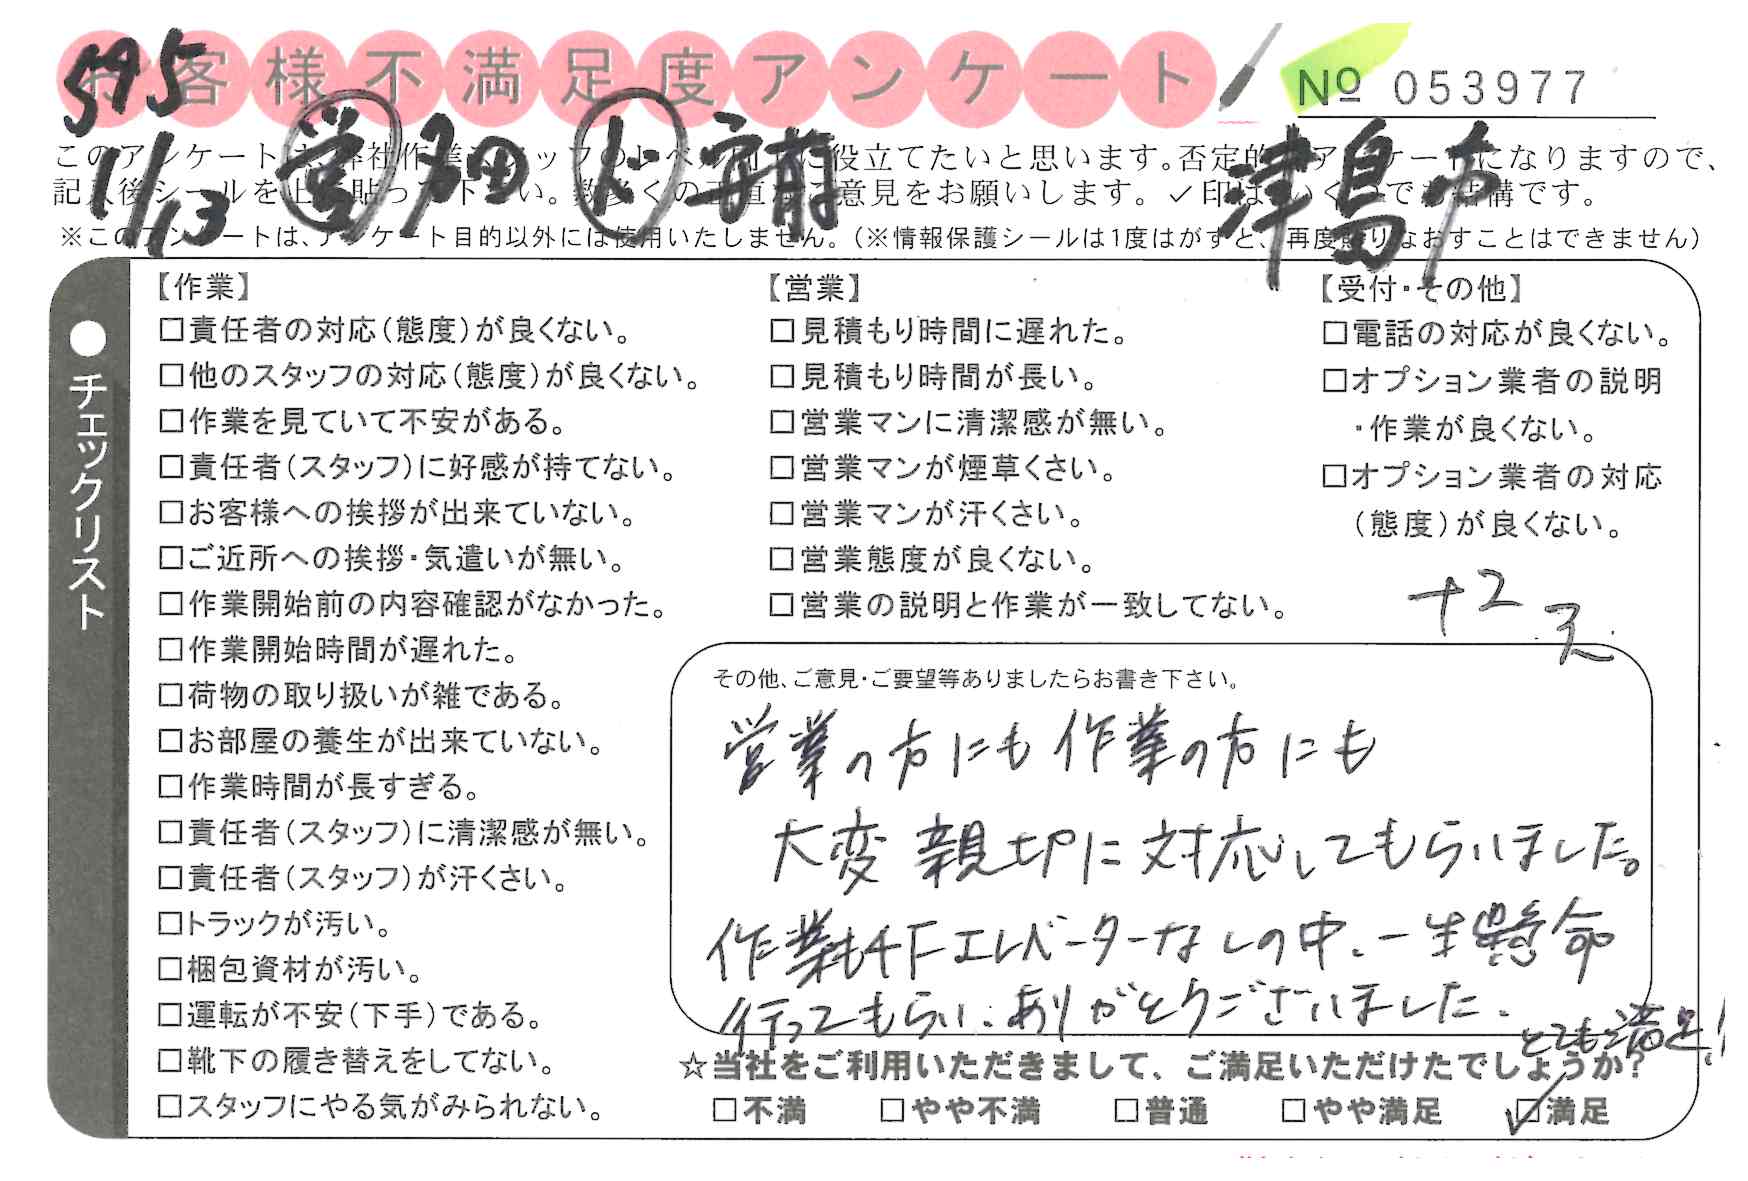 お客様不満足度アンケート
№ 053977
595
1/13 営 多田 ド 宇前 津島市
このアンケートは、弊社作業スタッフのレベル向上に役立てたいと思います。否定的なアンケートになりますので、
記入後シールを上に貼って下さい。数多くの正直なご意見をお願いします。✓印はいくつでも結構です。
※このアンケートは、アンケート目的以外には使用いたしません。(※情報保護シールは1度はがすと、再度貼りなおすことはできません)
●チェックリスト
【作業】
□責任者の対応(態度)が良くない。
□他のスタッフの対応(態度)が良くない。
□作業を見ていて不安がある。
□責任者(スタッフ)に好感が持てない。
□お客様への挨拶が出来ていない。
□ご近所への挨拶・気遣いが無い。
□作業開始前の内容確認がなかった。
□作業開始時間が遅れた。
□荷物の取り扱いが雑である。
□お部屋の養生が出来ていない。
□作業時間が長すぎる。
□責任者(スタッフ)に清潔感が無い。
□責任者(スタッフ)が汗くさい。
□トラックが汚い。
□梱包資材が汚い。
□運転が不安(下手)である。
□靴下の履き替えをしてない。
□スタッフにやる気がみられない。
【営業】
□見積もり時間に遅れた。
□見積もり時間が長い。
□営業マンに清潔感が無い。
□営業マンが煙草くさい。
□営業マンが汗くさい。
□営業態度が良くない。
□営業の説明と作業が一致してない。
【受付・その他】
□電話の対応が良くない。
□オプション業者の説明
・作業が良くない。
□オプション業者の対応
(態度)が良くない。
+2
その他、ご意見・ご要望等ありましたらお書き下さい。
営業の方にも作業の方にも
大変親切に対応してもらいました。
作業も4Fエレベーターなしの中、一生懸命
行ってもらい、ありがとうございました。
とても満足!
☆当社をご利用いただきまして、ご満足いただけたでしょうか?
□不満 □やや不満 □普通 □やや満足 ☑満足